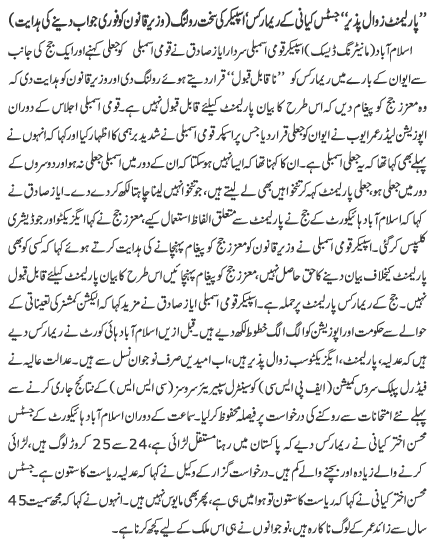 "پارلیمنٹ زوال پذیر" جسٹس کیانی کے ریمارکس' اسپیکر کی سخت رولنگ (وزیر قانون کو فوری جواب دینے کی ہدایت)
اسلام آباد (مانیٹرنگ ڈیسک) اسپیکر قومی اسمبلی سردار ایاز صادق نے قومی اسمبلی کو جعلی کہنے اور ایک جج کی جانب
سے ایوان کے بارے میں ریمارکس کو "ناقابل قبول" قرار دیتے ہوئے رولنگ دی اور وزیر قانون کو ہدایت دی کہ
وہ معزز جج کو پیغام دیں کہ اس طرح کا بیان پارلیمنٹ کیلئے قابل قبول نہیں ہے۔ قومی اسمبلی اجلاس کے دوران
اپوزیشن لیڈر عمر ایوب نے ایوان کو جعلی قرار دیا جس پر اسپیکر قومی اسمبلی نے شدید برہمی کا اظہار کیا اور کہا کہ انہوں نے
پہلے بھی کہا تھا کہ یہ جعلی اسمبلی ہے۔ ان کا کہنا تھا کہ ایسا نہیں ہو سکتا کہ ان کے دور میں اسمبلی جعلی نہ ہو اور دوسروں کے
دور میں جعلی ہو، جعلی پارلیمنٹ کہہ کر تنخواہیں بھی لے لیتے ہیں، جو تنخوا نہیں لینا چاہتا لکھ کر دے دے۔ ایاز صادق نے
کہا کہ اسلام آباد ہائیکورٹ کے جج نے پارلیمنٹ سے متعلق الفاظ استعمال کیے، معزز جج نے کہا ایگزیکٹو اور جوڈیشری
کلیپس کر گئی۔ اسپیکر قومی اسمبلی نے وزیر قانون کو معزز جج کو پیغام پہنچانے کی ہدایت کرتے ہوئے کہا کہ کسی کو بھی
پارلیمنٹ کیخلاف بیان دینے کا حق حاصل نہیں، معزز جج کو پیغام پہنچائیں اس طرح کا بیان پارلیمنٹ کیلئے قابل قبول
نہیں۔ جج کے ریمارکس پارلیمنٹ پر حملہ ہے۔ اسپیکر قومی اسمبلی ایاز صادق نے مزید کہا کہ الیکشن کمشنر کی تعیناتی کے
حوالے سے حکومت اور اپوزیشن کو الگ الگ خطوط لکھ دیے ہیں۔ قبل ازیں اسلام آباد ہائی کورٹ نے ریمارکس دیے
ہیں کہ عدلیہ، پارلیمنٹ، ایگزیکٹو سب زوال پذیر ہیں، اب امیدیں صرف نوجوان نسل سے ہیں۔ عدالت عالیہ نے
فیڈرل پبلک سروس کمیشن (ایف پی ایس سی) کو سینٹرل سپیریئر سروسز (سی ایس ایس) کے نتائج جاری کرنے سے
پہلے نئے امتحانات سے روکنے کی درخواست پر فیصلہ محفوظ کر لیا۔ سماعت کے دوران اسلام آباد ہائیکورٹ کے جسٹس
محسن اختر کیانی نے ریمارکس دیے کہ پاکستان میں رہنا مستقل لڑائی ہے، 24 سے 25 کروڑ لوگ ہیں، لڑائی
کرنے والے زیادہ اور بچنے والے کم ہیں۔ درخواست گزار کے وکیل نے کہا کہ عدلیہ ریاست کا ستون ہے۔ جسٹس
محسن اختر کیانی نے کہا کہ ریاست کا ستون تو ہوا میں ہی ہے، پھر بھی مایوس نہیں ہیں۔ انہوں نے کہا کہ مجھ سمیت 45
سال سے زائد عمر کے لوگ ناکارہ ہیں، نوجوانوں نے ہی اس ملک کے لیے کچھ کرنا ہے۔